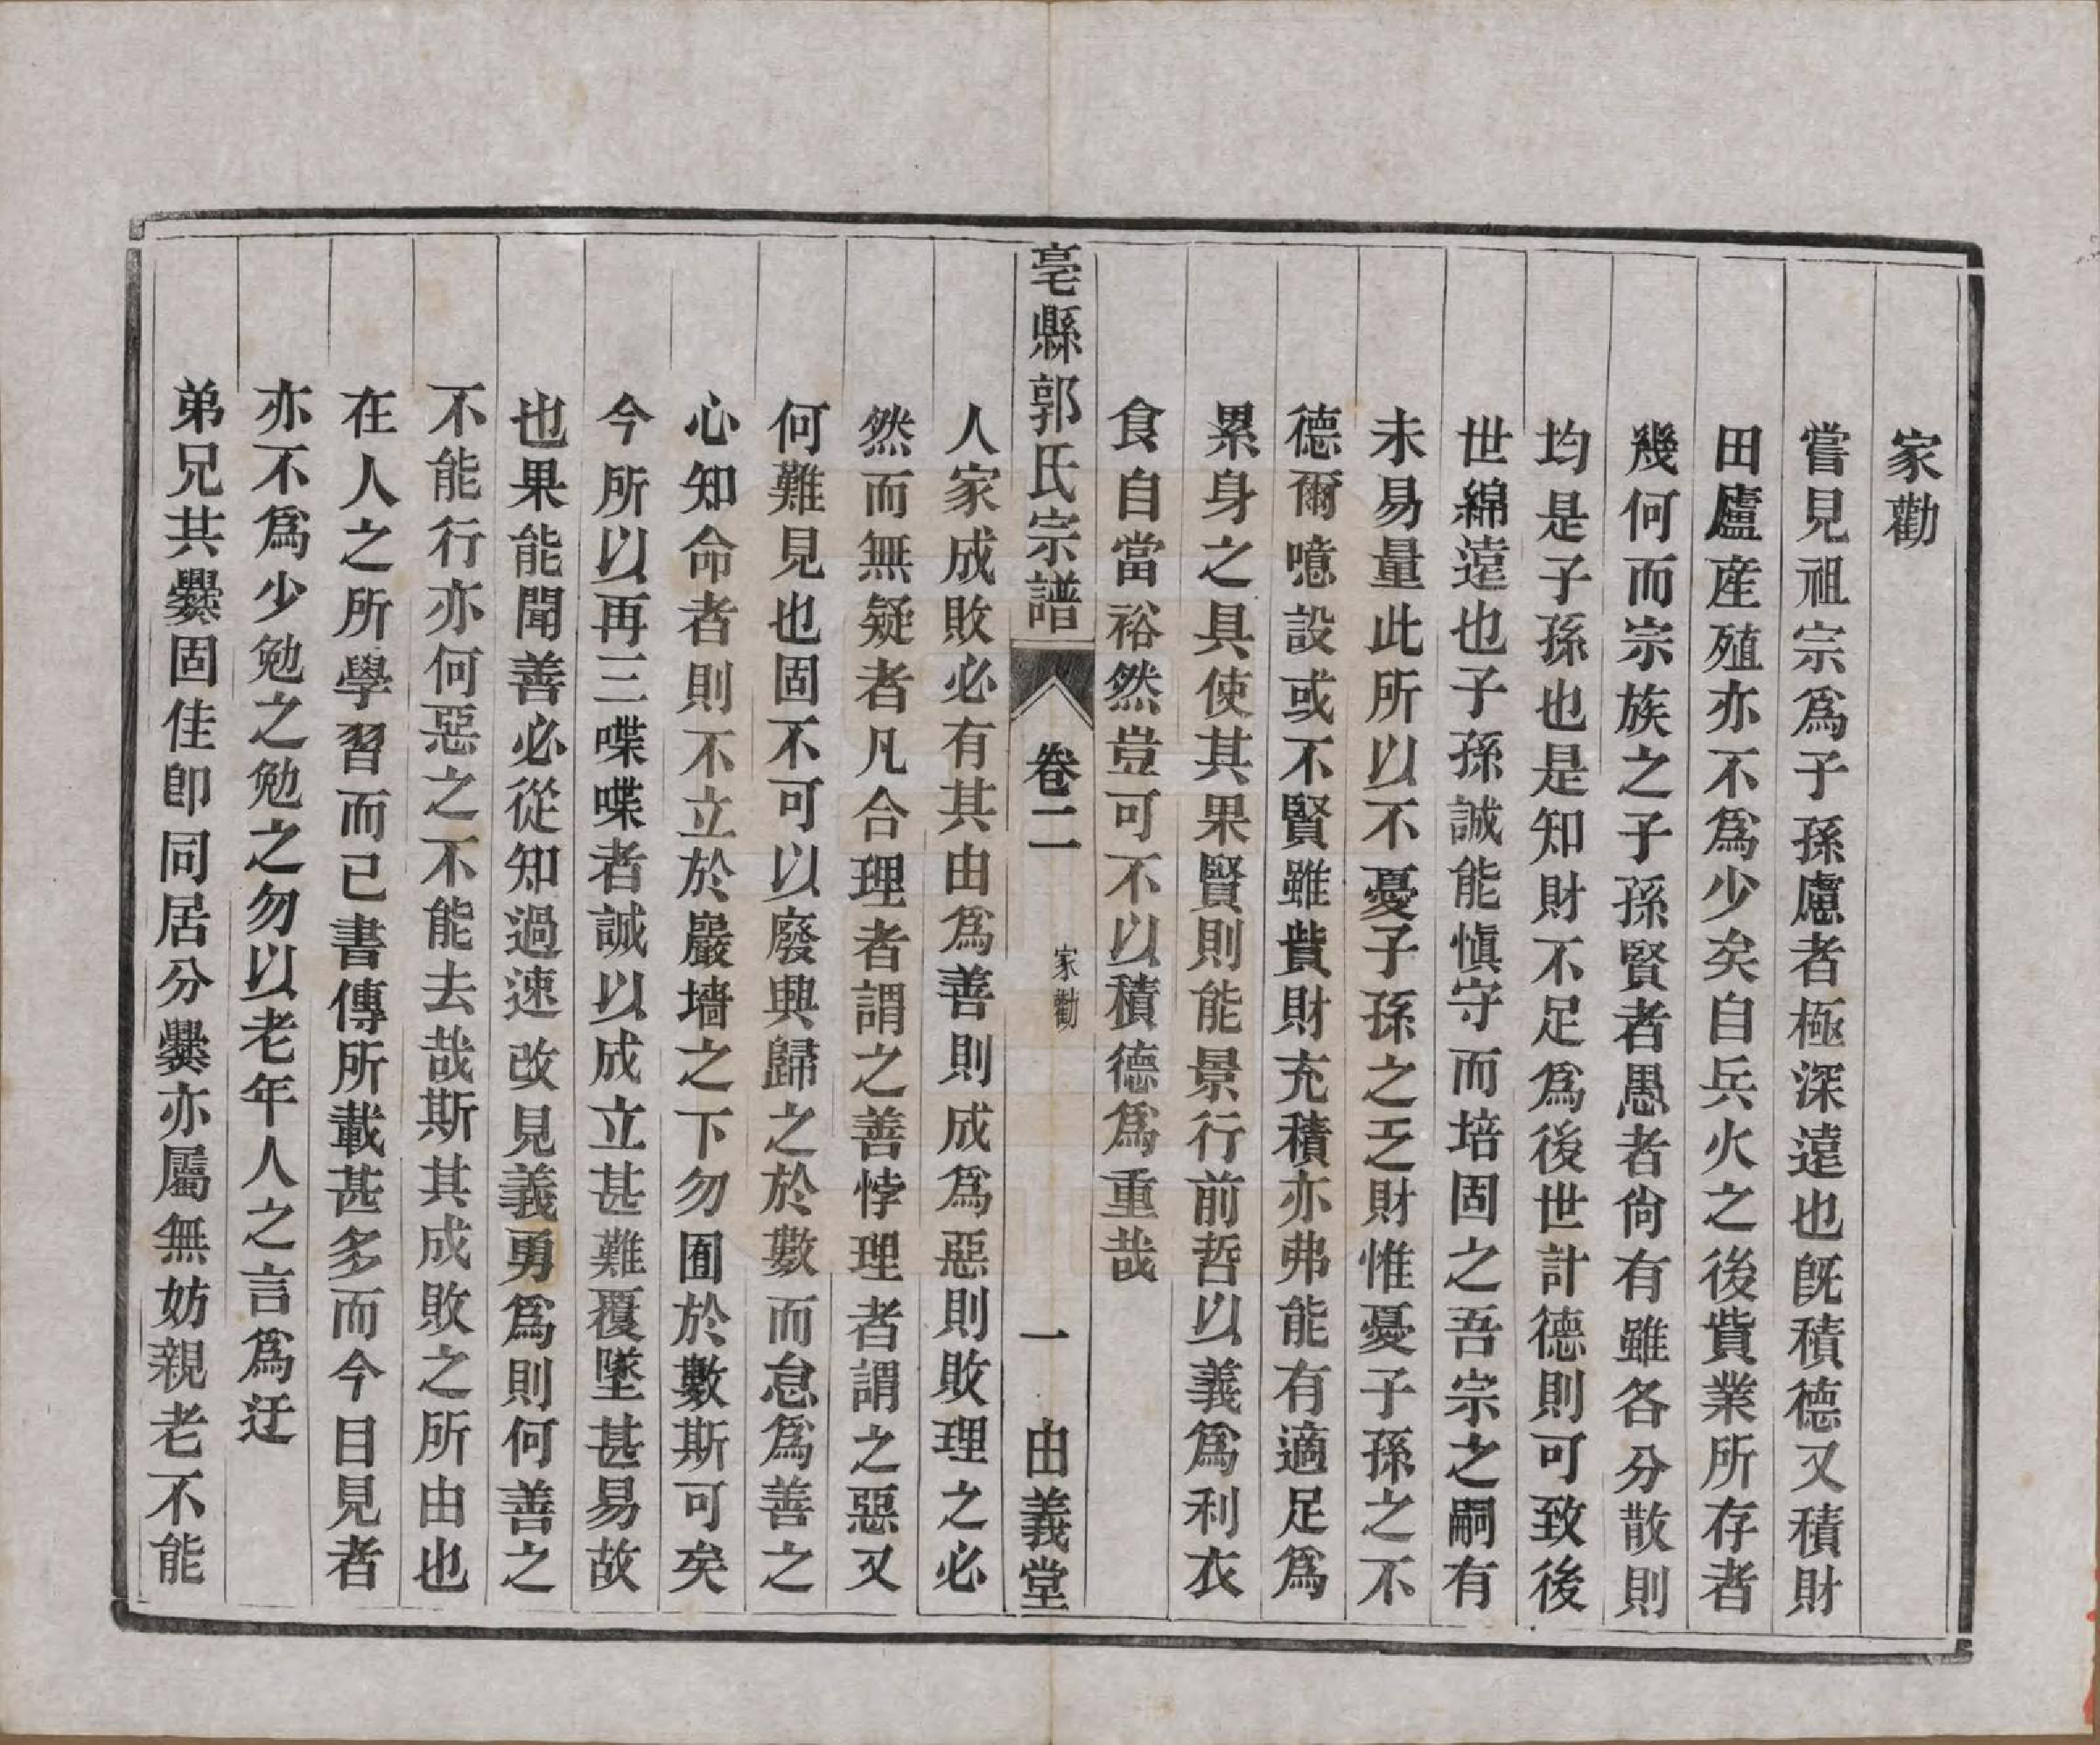 家勸
嘗見祖宗爲子孫慮者極深遠也旣積德又積財
田廬産殖亦不爲少矣自兵火之後貲業所存者
幾何而宗族之子孫賢者愚者尙有雖各分散則
均是子孫也是知財不足爲後世計德則可致後
世綿遠也子孫誠能愼守而培固之吾宗之嗣有
未易量此所以不憂子孫之乏財惟憂子孫之不
德爾噫設或不賢雖貲財充積亦弗能有適足爲
累身之具使其果賢則能景行前哲以義爲利衣
食自當裕然豈可不以積德爲重哉
亳縣郭氏宗譜 卷二 家勸 一 由義堂
人家成敗必有其由爲善則成爲惡則敗理之必
然而無疑者凡合理者謂之善悖理者謂之惡又
何難見也固不可以廢興歸之於數而怠爲善之
心知命者則不立於巖墻之下勿囿於數斯可矣
今所以再三喋喋者誠以成立甚難覆墜甚易故
也果能聞善必從知過速改見義勇爲則何善之
不能行亦何惡之不能去哉斯其成敗之所由也
在人之所學習而已書傳所載甚多而今目見者
亦不爲少勉之勉之勿以老年人之言爲迂
弟兄共爨固佳卽同居分爨亦屬無妨親老不能